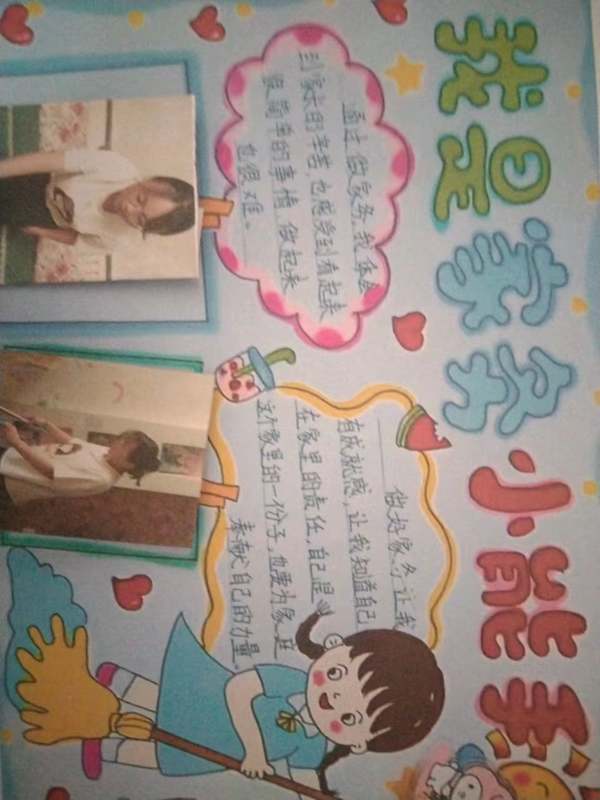 我是家务小能手
通过做家务,我体会
到家长的辛苦,也感受到看起来
很简单的事情,做起来
也很难。
做好家务,让我
有成就感,让我知道自己
在家里的责任,自己是
这个家里的一份子,也要为家庭
奉献自己的力量。